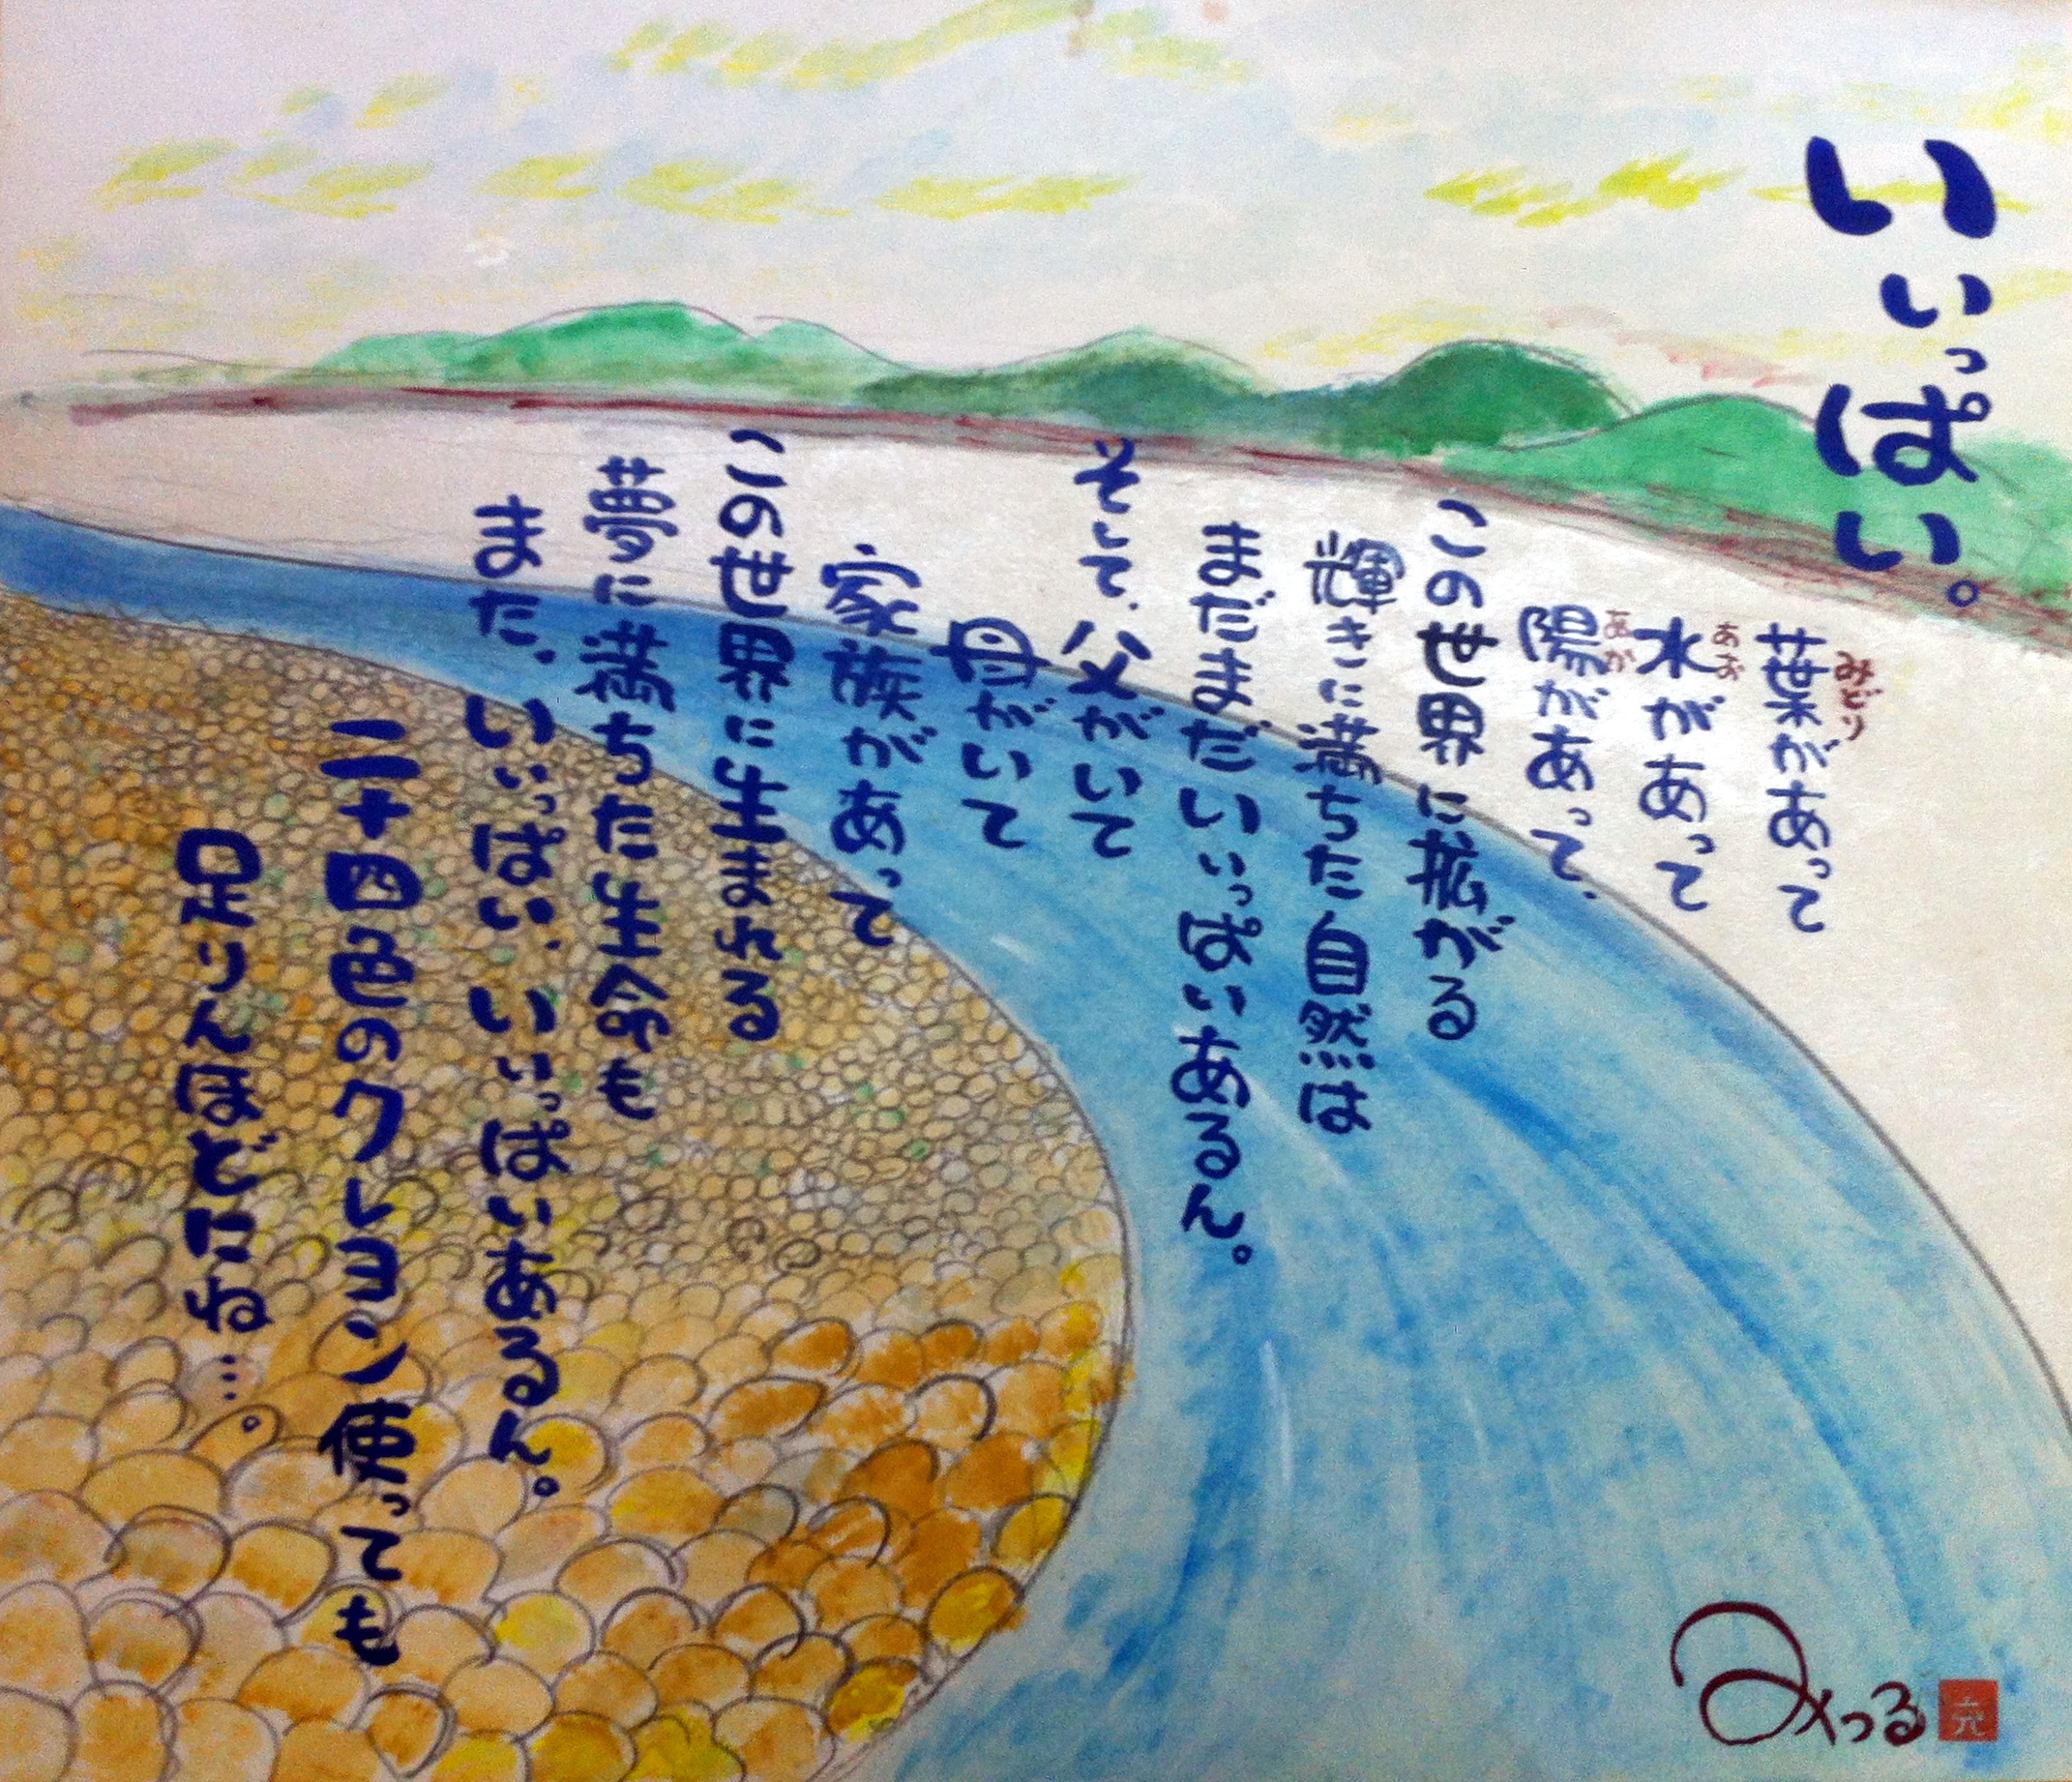 いぃっぱい。
葉がぁって
みどり
水がぁって
あお
陽がぁって、
あか
この世界に拡がる
輝きに満ちた自然は
まだまだいぃっぱいあるん。
そして、父がいて
母がいて
家族があって
この世界に生まれる
夢に満ちた生命も
また、いぃっぱい、いぃっぱいあるん。
二十四色のクレヨン使っても
足りんほどにね…。
みつる
充